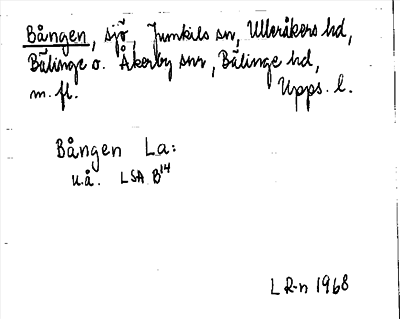 Bången, sjö, Jumkils sn, Ulleråkers hd,
Bälinge o. Åkerby snr, Bälinge hd,
m.fl. Upps. l.
Bången La:
u.å. LSA B14
LR-n 1968